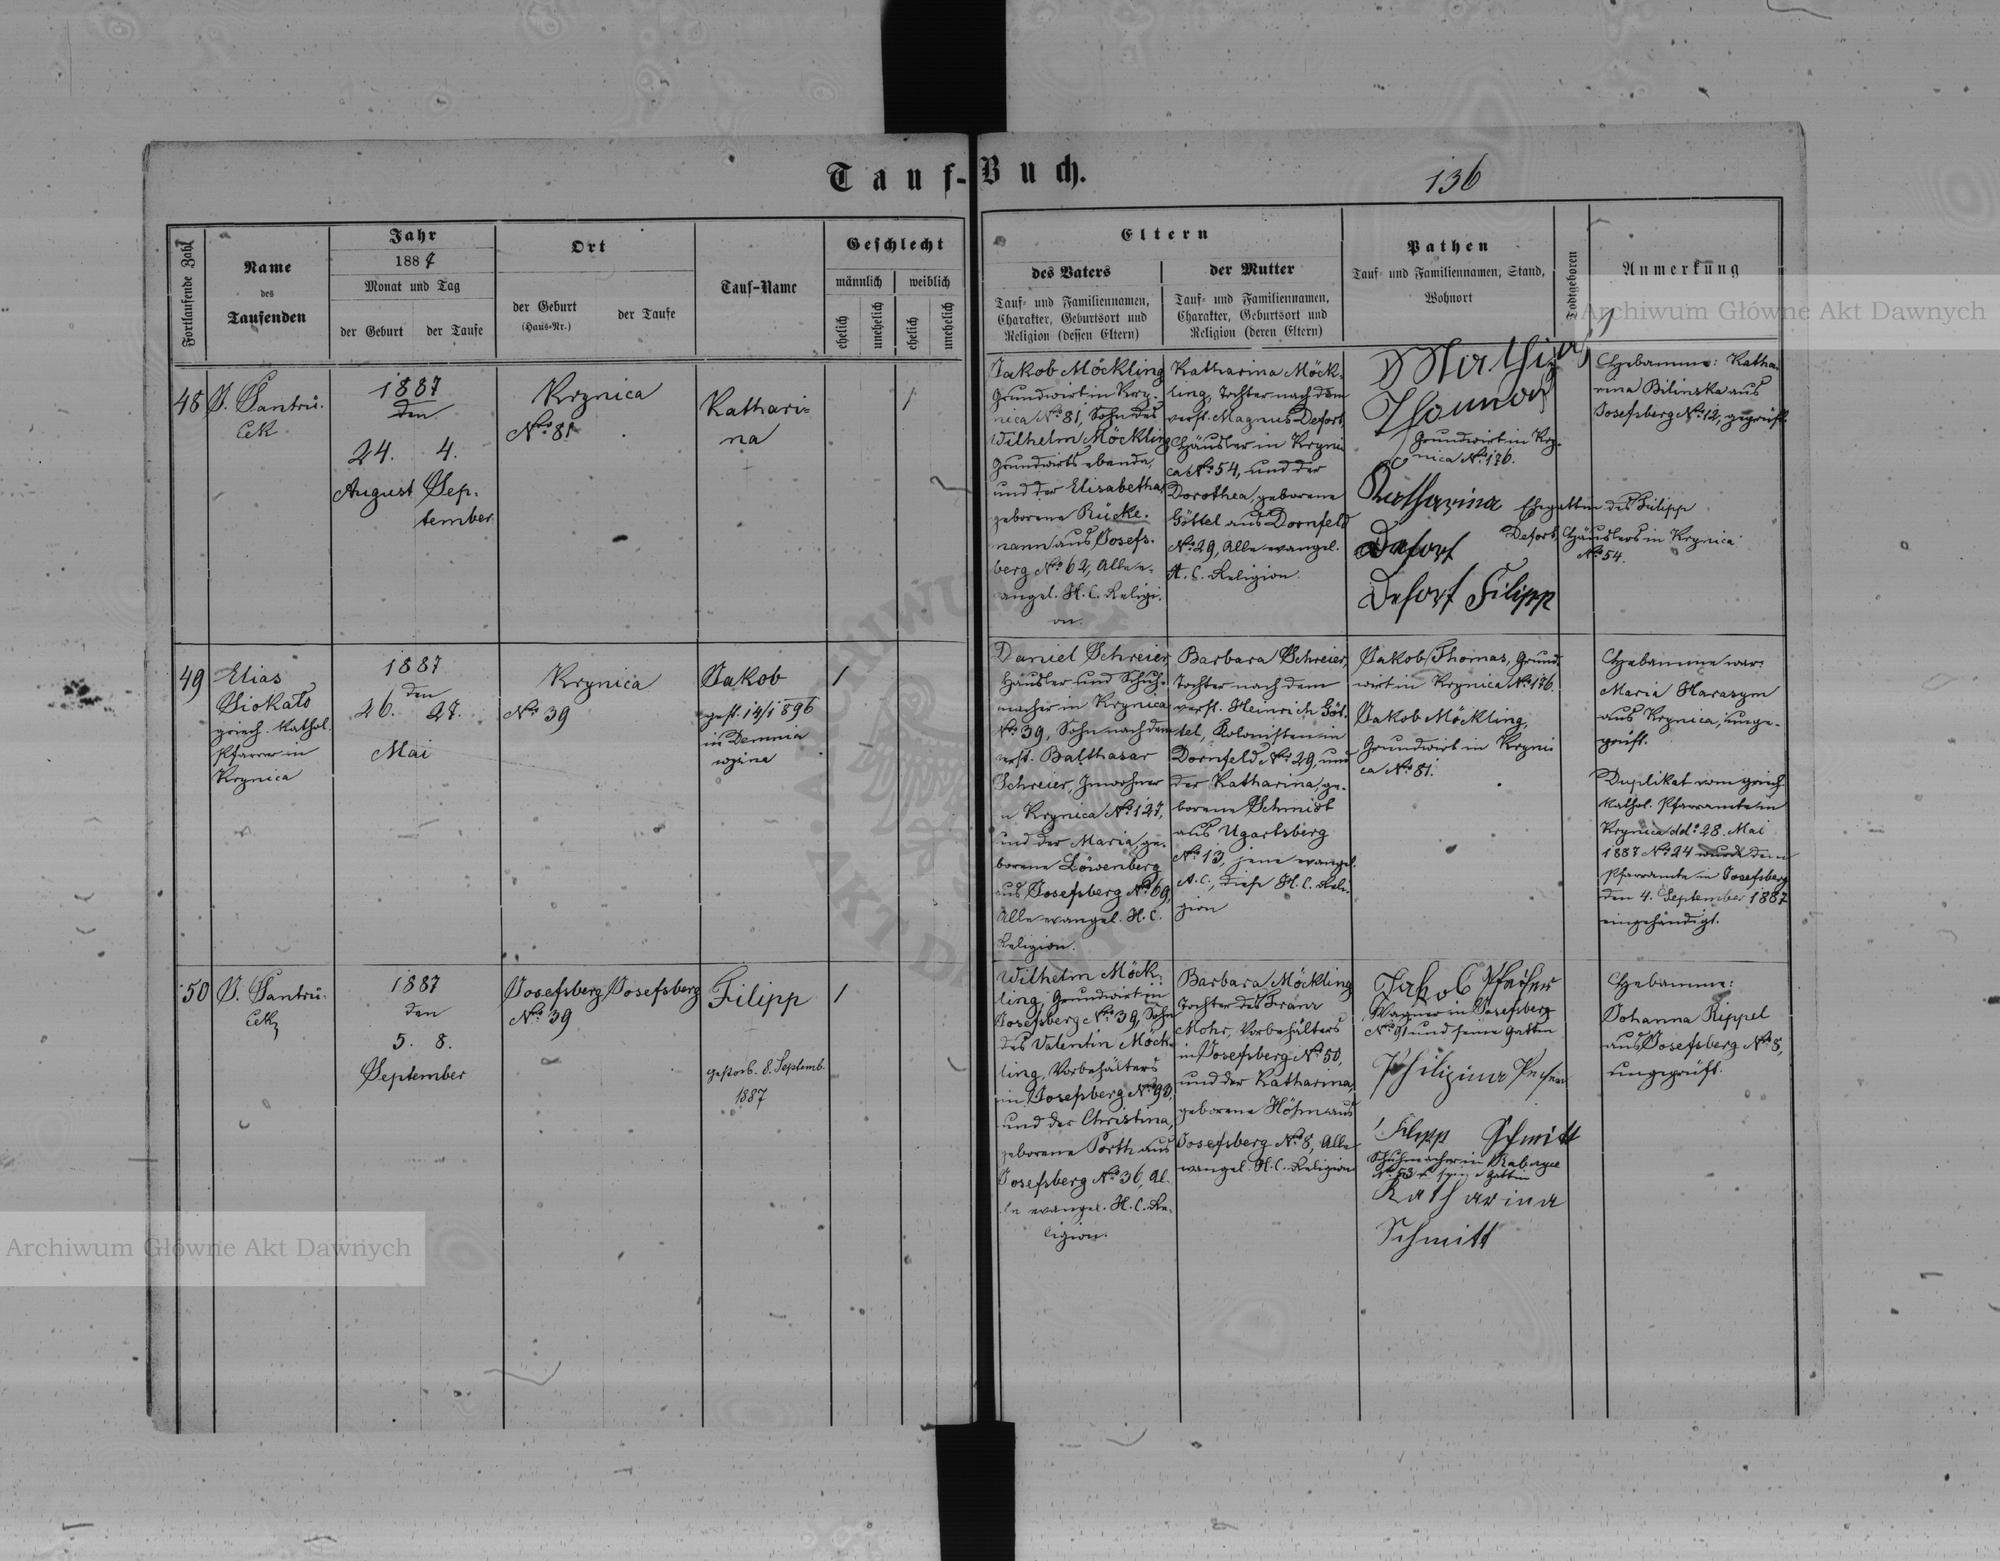 Tauf-Buch.
136
Fortlaufende Zahl
Name
des
Taufenden
Jahr
1887
Monat und Tag
der Geburt
der Taufe
Ort
der Geburt
(Haus-Nr.)
der Taufe
Tauf-Name
Geschlecht
männlich
weiblich
ehelich
unehelich
ehelich
unehelich
Eltern
des Vaters
Tauf- und Familiennamen,
Charakter, Geburtsort und
Religion (dessen Eltern)
der Mutter
Tauf- und Familiennamen,
Charakter, Geburtsort und
Religion (deren Eltern)
Pathen
Tauf- und Familiennamen, Stand,
Wohnort
Todtgeboren
Anmerkung
48
1887
den
24. 4.
August Sep-
tember
Krynica
No 81
Kathari-
na
1
Jakob Möckling
Grundwirt in Kry-
nica No 81, Sohn des
Wilhelm Möckling
Grundwirts ebenda,
und der Elisabetha,
geborene Rücke-
mann aus Josefs-
berg No 62, Alle e-
vangel. H. C. Religi-
on.
Katharina Möck-
ling, Tochter nach dem
verst. Magnus Defort,
Häusler in Kryni
ca No 54, und der
Dorothea, geborene
Göttel aus Dornfeld
No 29, Alle evangel.
H. C. Religion.
Mathias
Thomas
Grundwirt in Kry-
nica No 176.
Katharina Ehegattin des Filipp
Defort Defort, Häuslers in Krynica
No 54.
Defort Filipp
Hebamme: Katha-
rina Bilinska aus
Josefsberg No 12, geprüft.
49
Elias
Siokalo
griech. kathol.
Pfarrer in
Krynica
1887
den
26. 27.
Mai
Krynica
No 39
Jakob
gest. 14/1 896
in Demnia
wyżna
1
Daniel Schreier,
Häusler und Schuh-
macher in Krynica
No 39, Sohn nach dem
verst. Balthasar
Schreier, Inwohner
in Krynica No 127,
und der Maria, ge-
borene Löwenberg
aus Josefsberg No 69,
Alle evangel. H. C.
Religion.
Barbara Schreier,
Tochter nach dem
verst. Heinrich Göt-
tel, Kolonisten in
Dornfeld No 29, und
der Katharina, ge-
borene Schmidt
aus Ugartsberg
No 13, jene evangel.
A. C., diese H. C. Reli-
gion
Jakob Thomas, Grund-
wirt in Krynica No 176.
Jakob Möckling,
Grundwirt in Kryni
ca No 81.
Hebamme war:
Maria Harasym
aus Krynica, unge-
prüft.
Duplikat vom griech.
kathol. Pfarramte in
Krynica ddo 28. Mai
1887 No 24 wurde dem
Pfarramte in Josefsberg
den 4. September 1887
eingehändigt.
50
1887
den
5. 8.
September
Josefsberg Josefsberg
No 39
Filipp
gestorb. 8. Septemb.
1887
1
Wilhelm Möck-
ling, Grundwirt in
Josefsberg No 39, Sohn
des Valentin Möck-
ling, Vorbehälters
in Josefsberg No 90,
und der Christina,
geborene Porth aus
Josefsberg No 36, Al-
le evangel. H. C. Re-
ligion.
Barbara Möckling
Tochter des Franz
Mohr, Vorbehälters
in Josefsberg No 50,
und der Katharina,
geborene Höhn aus
Josefsberg No 8, Alle
evangel. H. C. Religion
Jakob
Wagner in Josefsberg
No 91 und seine Gattin
Philipina
Filipp Schmitt
Schuhmacher in
No 53 u. seine Gattin
Katharina
Schmitt
Hebamme:
Johanna Rippel
aus Josefsberg No 8,
ungeprüft.
Archiwum Główne Akt Dawnych
Archiwum Główne Akt Dawnych